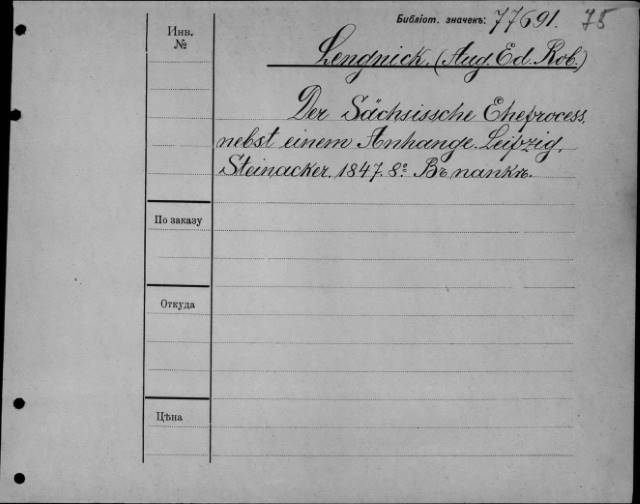 Библіот. значекъ: 77691. 75
Инв.
№
Lengnick. (Aug. Ed. Rob.)
Der Sächsissche Eheprocess,
nebst einem Anhange. Leipzig.
Steinacker. 1847. 8º. Въ папкѣ.
По заказу
Откуда
Цѣна